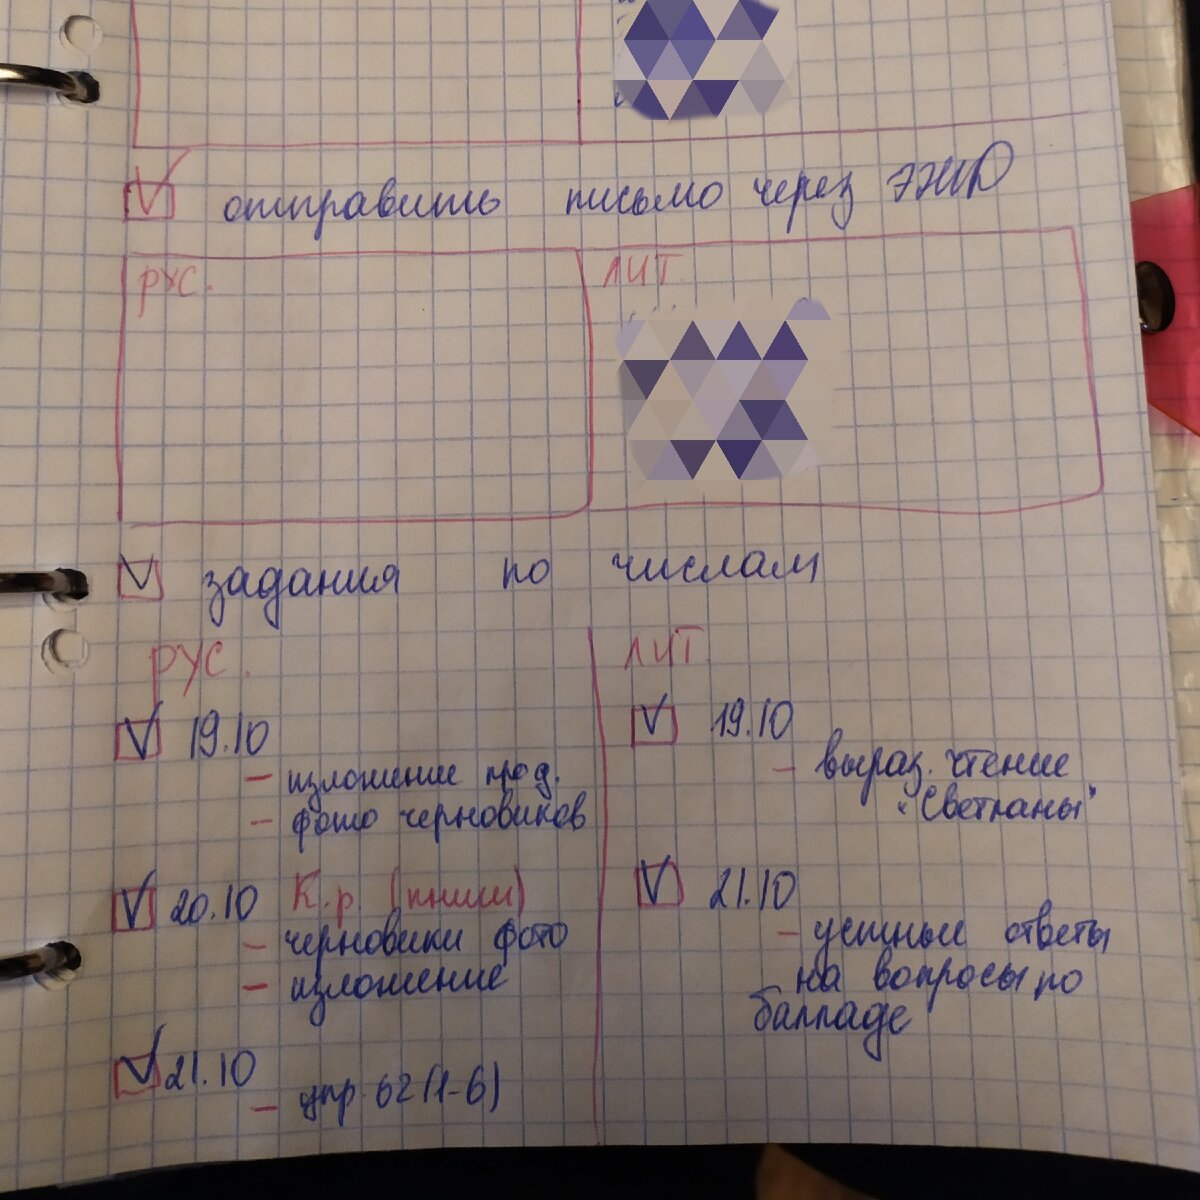 отправить письмо через ЭЖД
рус. лит
задания по числам
рус.
19.10
- изложение прод.
- фото черновиков
20.10 К.р.
- черновики фото
- изложение
21.10
- упр. 62 (1-6)
лит
19.10
- выраз. чтение
"Светланы"
21.10
- устные ответы
на вопросы по
балладе